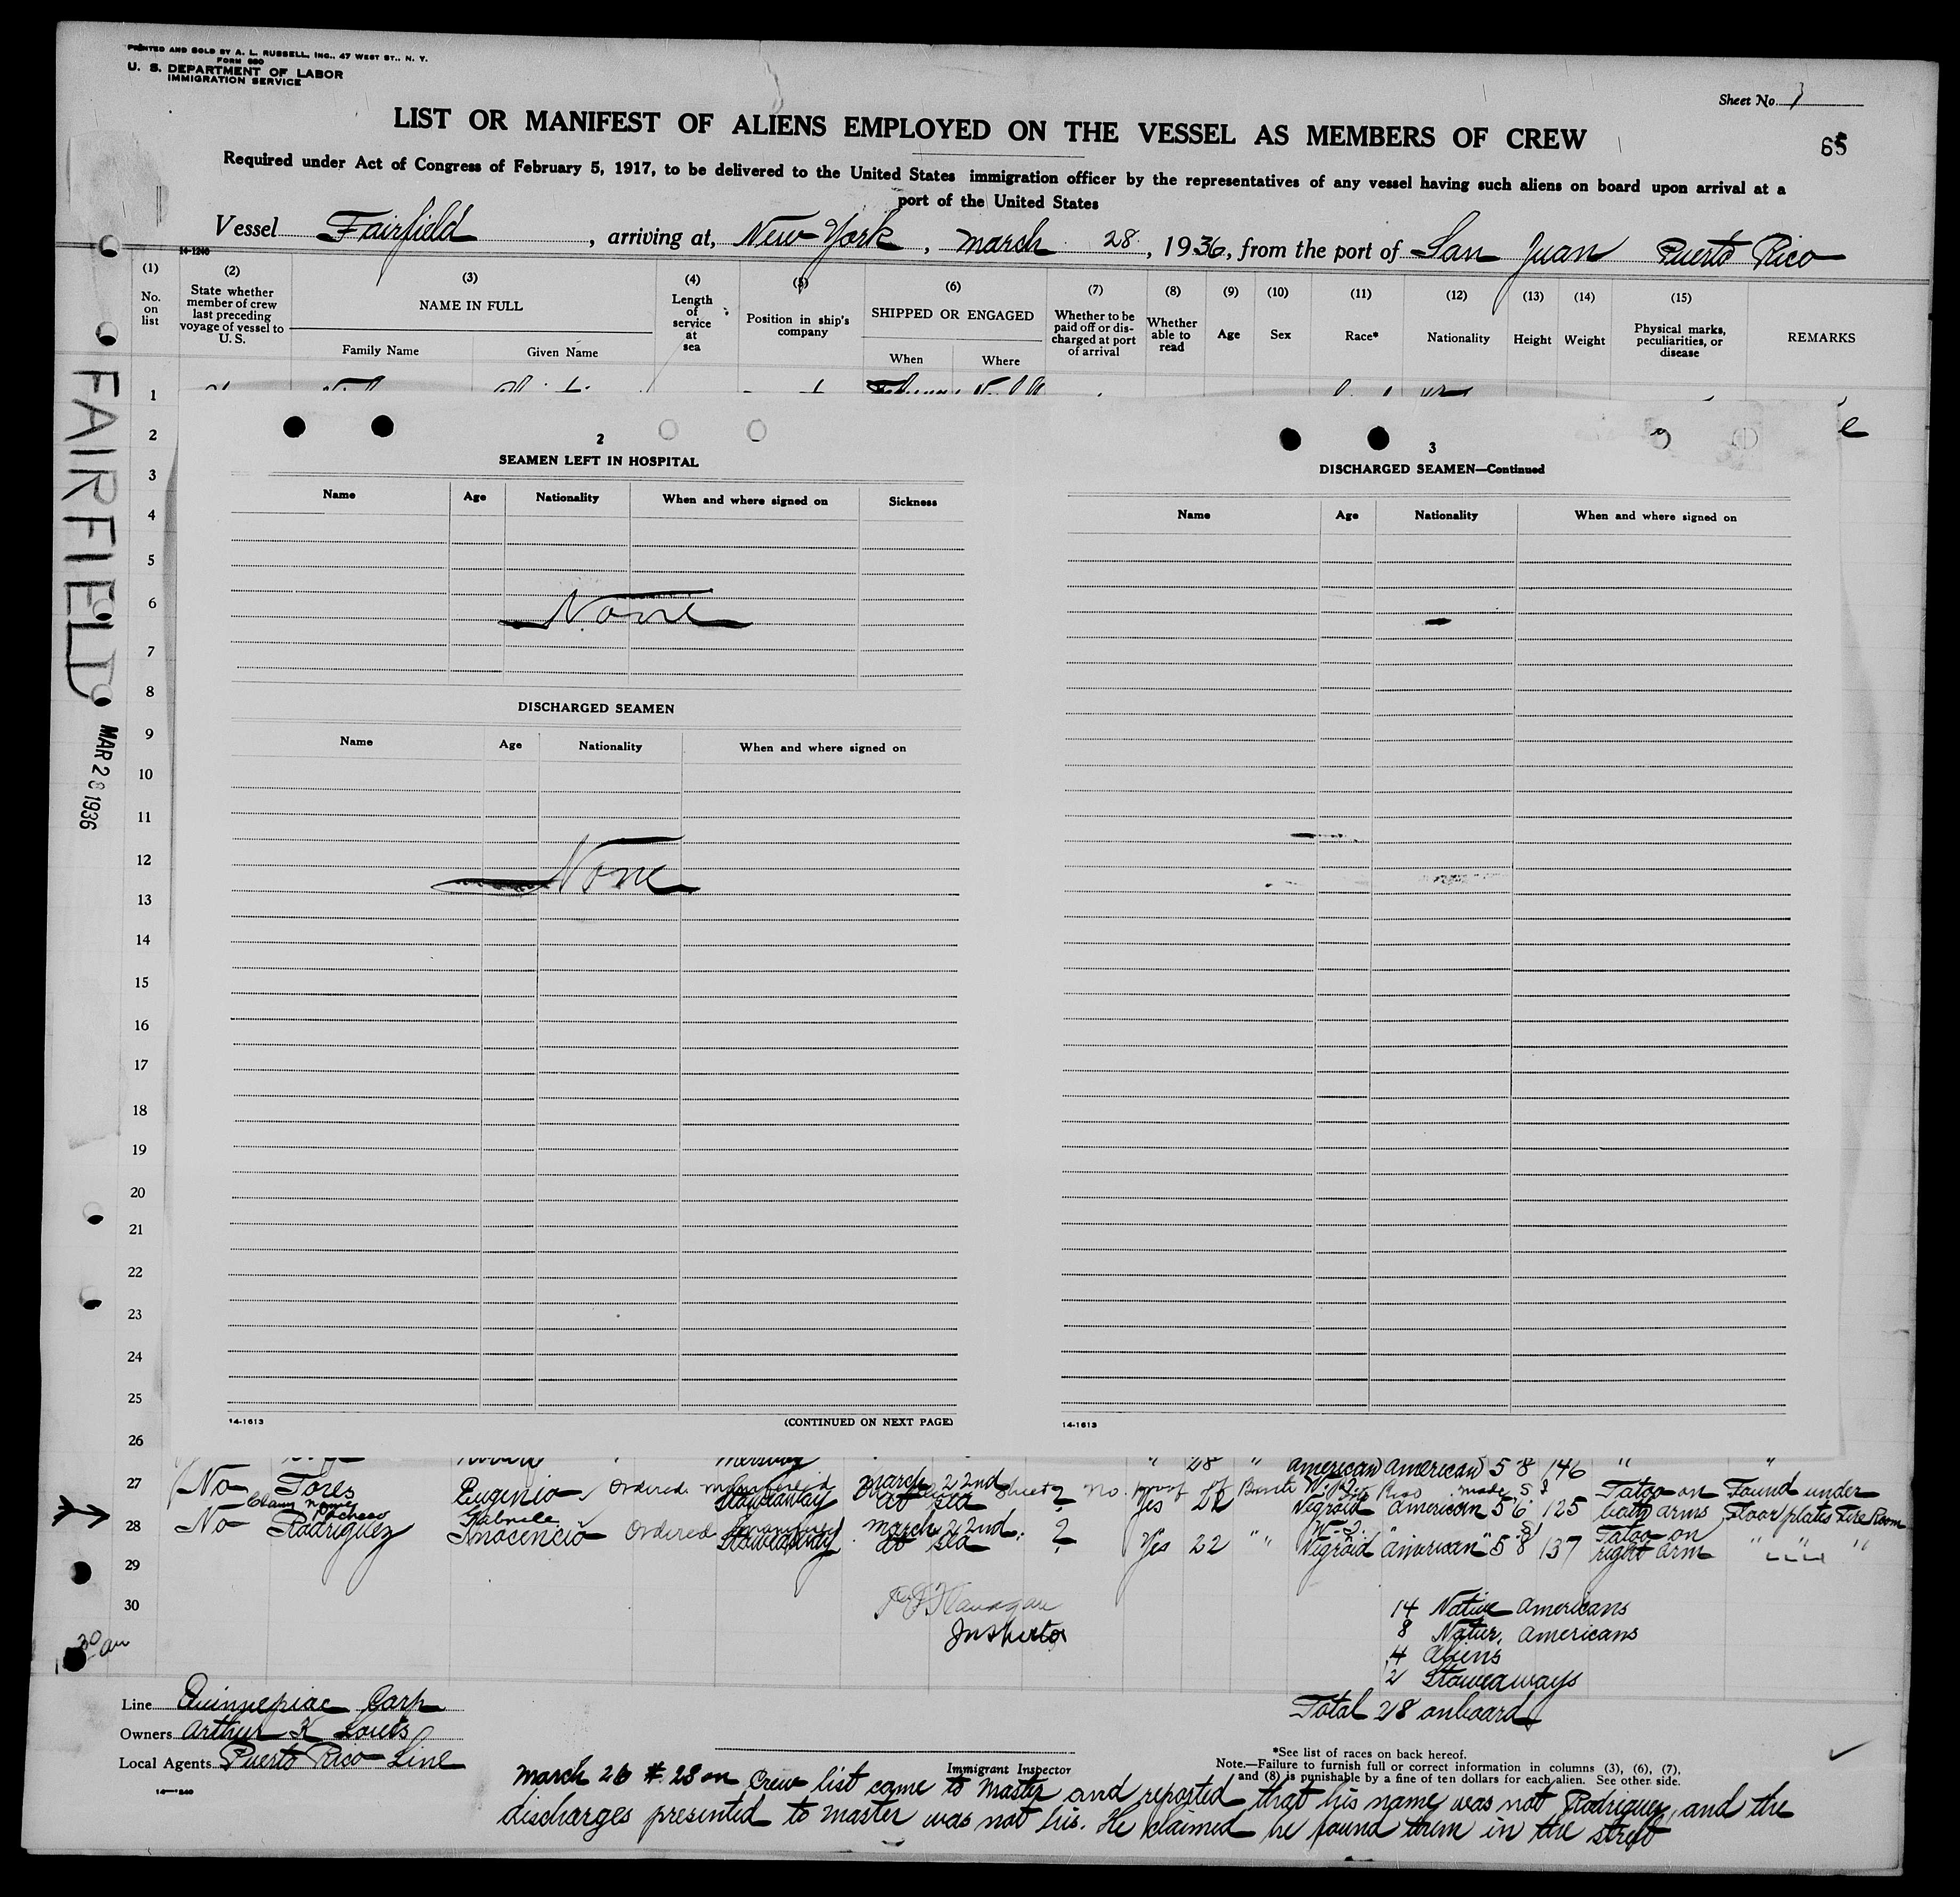 PRINTED AND SOLD BY A. L. RUSSELL, INC., 47 WEST ST., N. Y.
FORM 680
U. S. DEPARTMENT OF LABOR
IMMIGRATION SERVICE
Sheet No. 1
LIST OR MANIFEST OF ALIENS EMPLOYED ON THE VESSEL AS MEMBERS OF CREW
65
Required under Act of Congress of February 5, 1917, to be delivered to the United States immigration officer by the representatives of any vessel having such aliens on board upon arrival at a
port of the United States
Vessel Fairfield, arriving at, New York, March 28, 1936, from the port of San Juan Puerto Rico
14-1240
(1) (2) (3) (4) (5) (6) (7) (8) (9) (10) (11) (12) (13) (14) (15)
No. on list
State whether member of crew last preceding voyage of vessel to U. S.
NAME IN FULL
Family Name Given Name
Length of service at sea
Position in ship's company
SHIPPED OR ENGAGED
When Where
Whether to be paid off or discharged at port of arrival
Whether able to read
Age
Sex
Race*
Nationality
Height
Weight
Physical marks, peculiarities, or disease
REMARKS
FAIRFIELD
MAR 28 1936
1
2
3
4
5
6
7
8
9
10
11
12
13
14
15
16
17
18
19
20
21
22
23
24
25
26
2
SEAMEN LEFT IN HOSPITAL
Name Age Nationality When and where signed on Sickness
None
DISCHARGED SEAMEN
Name Age Nationality When and where signed on
None
14-1613 (CONTINUED ON NEXT PAGE)
3
DISCHARGED SEAMEN—Continued
Name Age Nationality When and where signed on
14-1613
" 28 " American American 5 8 146 " "
27 No Tores Eugenio Ordered Stowaway March 22nd at sea 2 No proof of Yes Negroid American 5 6 125 Tatoo on both arms Found under Floor plates Fire Room
Claim name Pacheco Gabriele
28 No Rodriguez Inocencio Ordered Stowaway March 22nd at sea ? Yes 22 " Negroid American 5 8 137 Tatoo on right arm " " "
29
30
Inspector
14 Native Americans
8 Natur. Americans
4 Aliens
2 Stoweaways
Total 28 onboard
30 am
Line Quinnepiac Corp
Owners Arthur K Louis
Local Agents Puerto Rico Line
14-1240
Immigrant Inspector
*See list of races on back hereof.
Note.—Failure to furnish full or correct information in columns (3), (6), (7),
and (8) is punishable by a fine of ten dollars for each alien. See other side.
March 26 # 28 on Crew list came to Master and reported that his name was not Rodriguez, and the
discharges presented to master was not his. He claimed he found them in the street